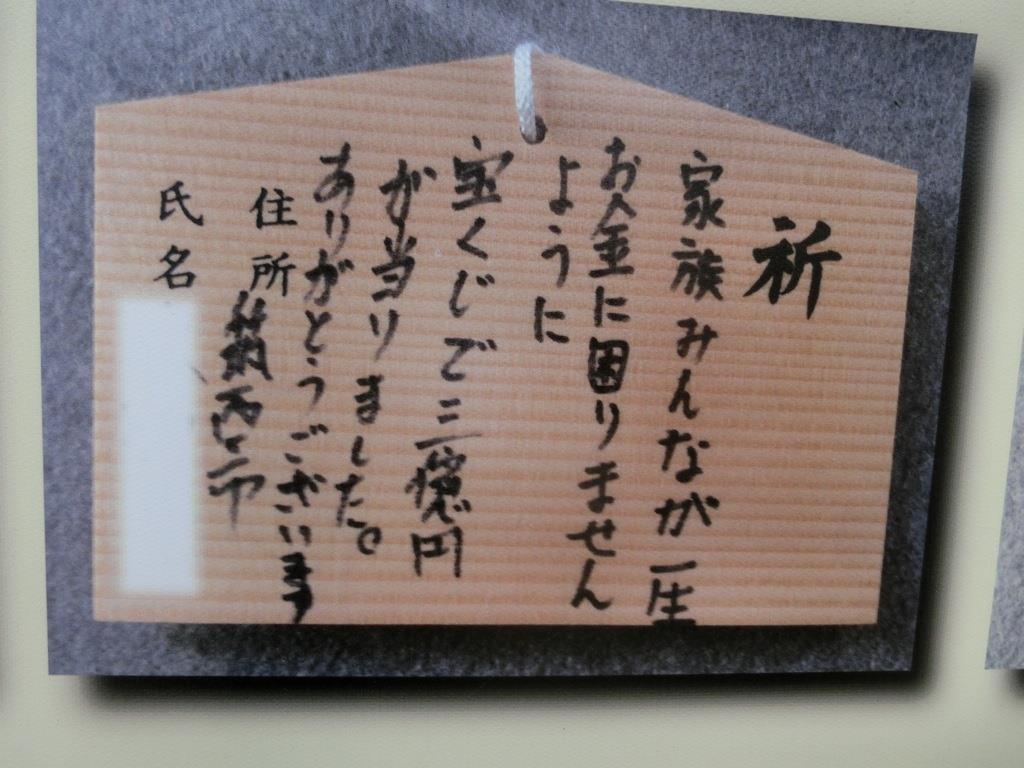 祈
家族みんなが一生
お金に困りません
ように
宝くじで三億円
が当りました。
ありがとうございます
住所
筑西市
氏名